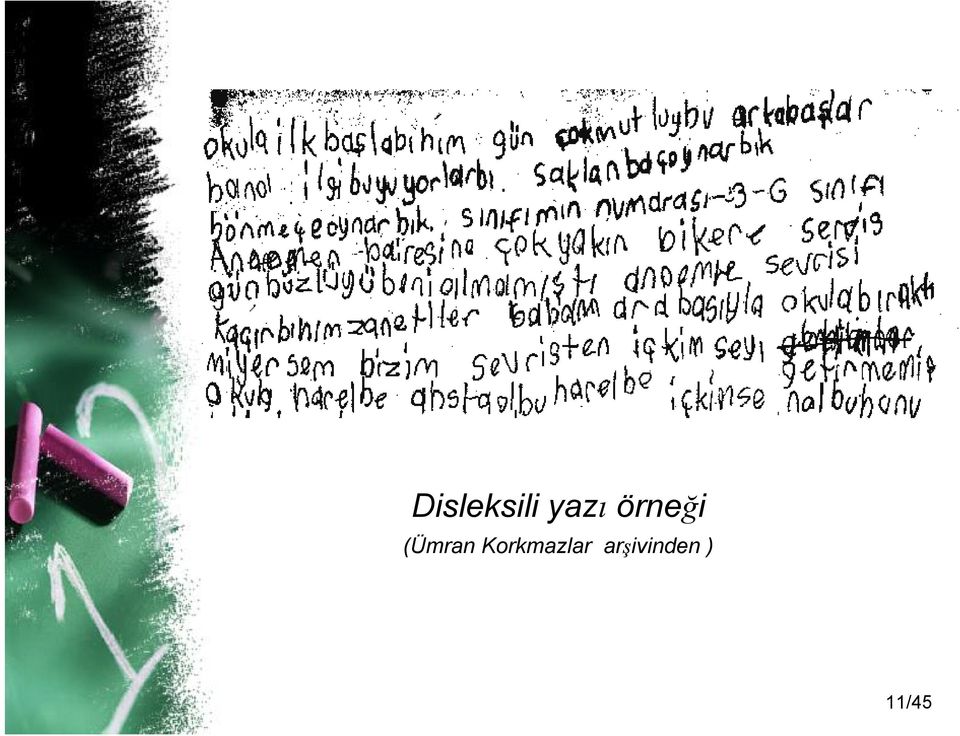 okula ilk başlabıhım gün çokmutluybu arkabaşlar
bana ilgibuyuyorlarbı. saklanbaçoynarbık
bönmeçeoynarbık. sınıfımın numarası-3-G sınıfı
bairesine çokyakın bikere servis
günbüzlüyübeniailmamıştı anoemle sevrisi
kaçırbıhımzanettiler babam arabasıyla okulabıraktı
miyersem bizim sevristen içkimseyi
getirmemiş
okula harelbe harelbe içkinse nalbuhunu
Disleksili yazı örneği
(Ümran Korkmazlar arşivinden )
11/45